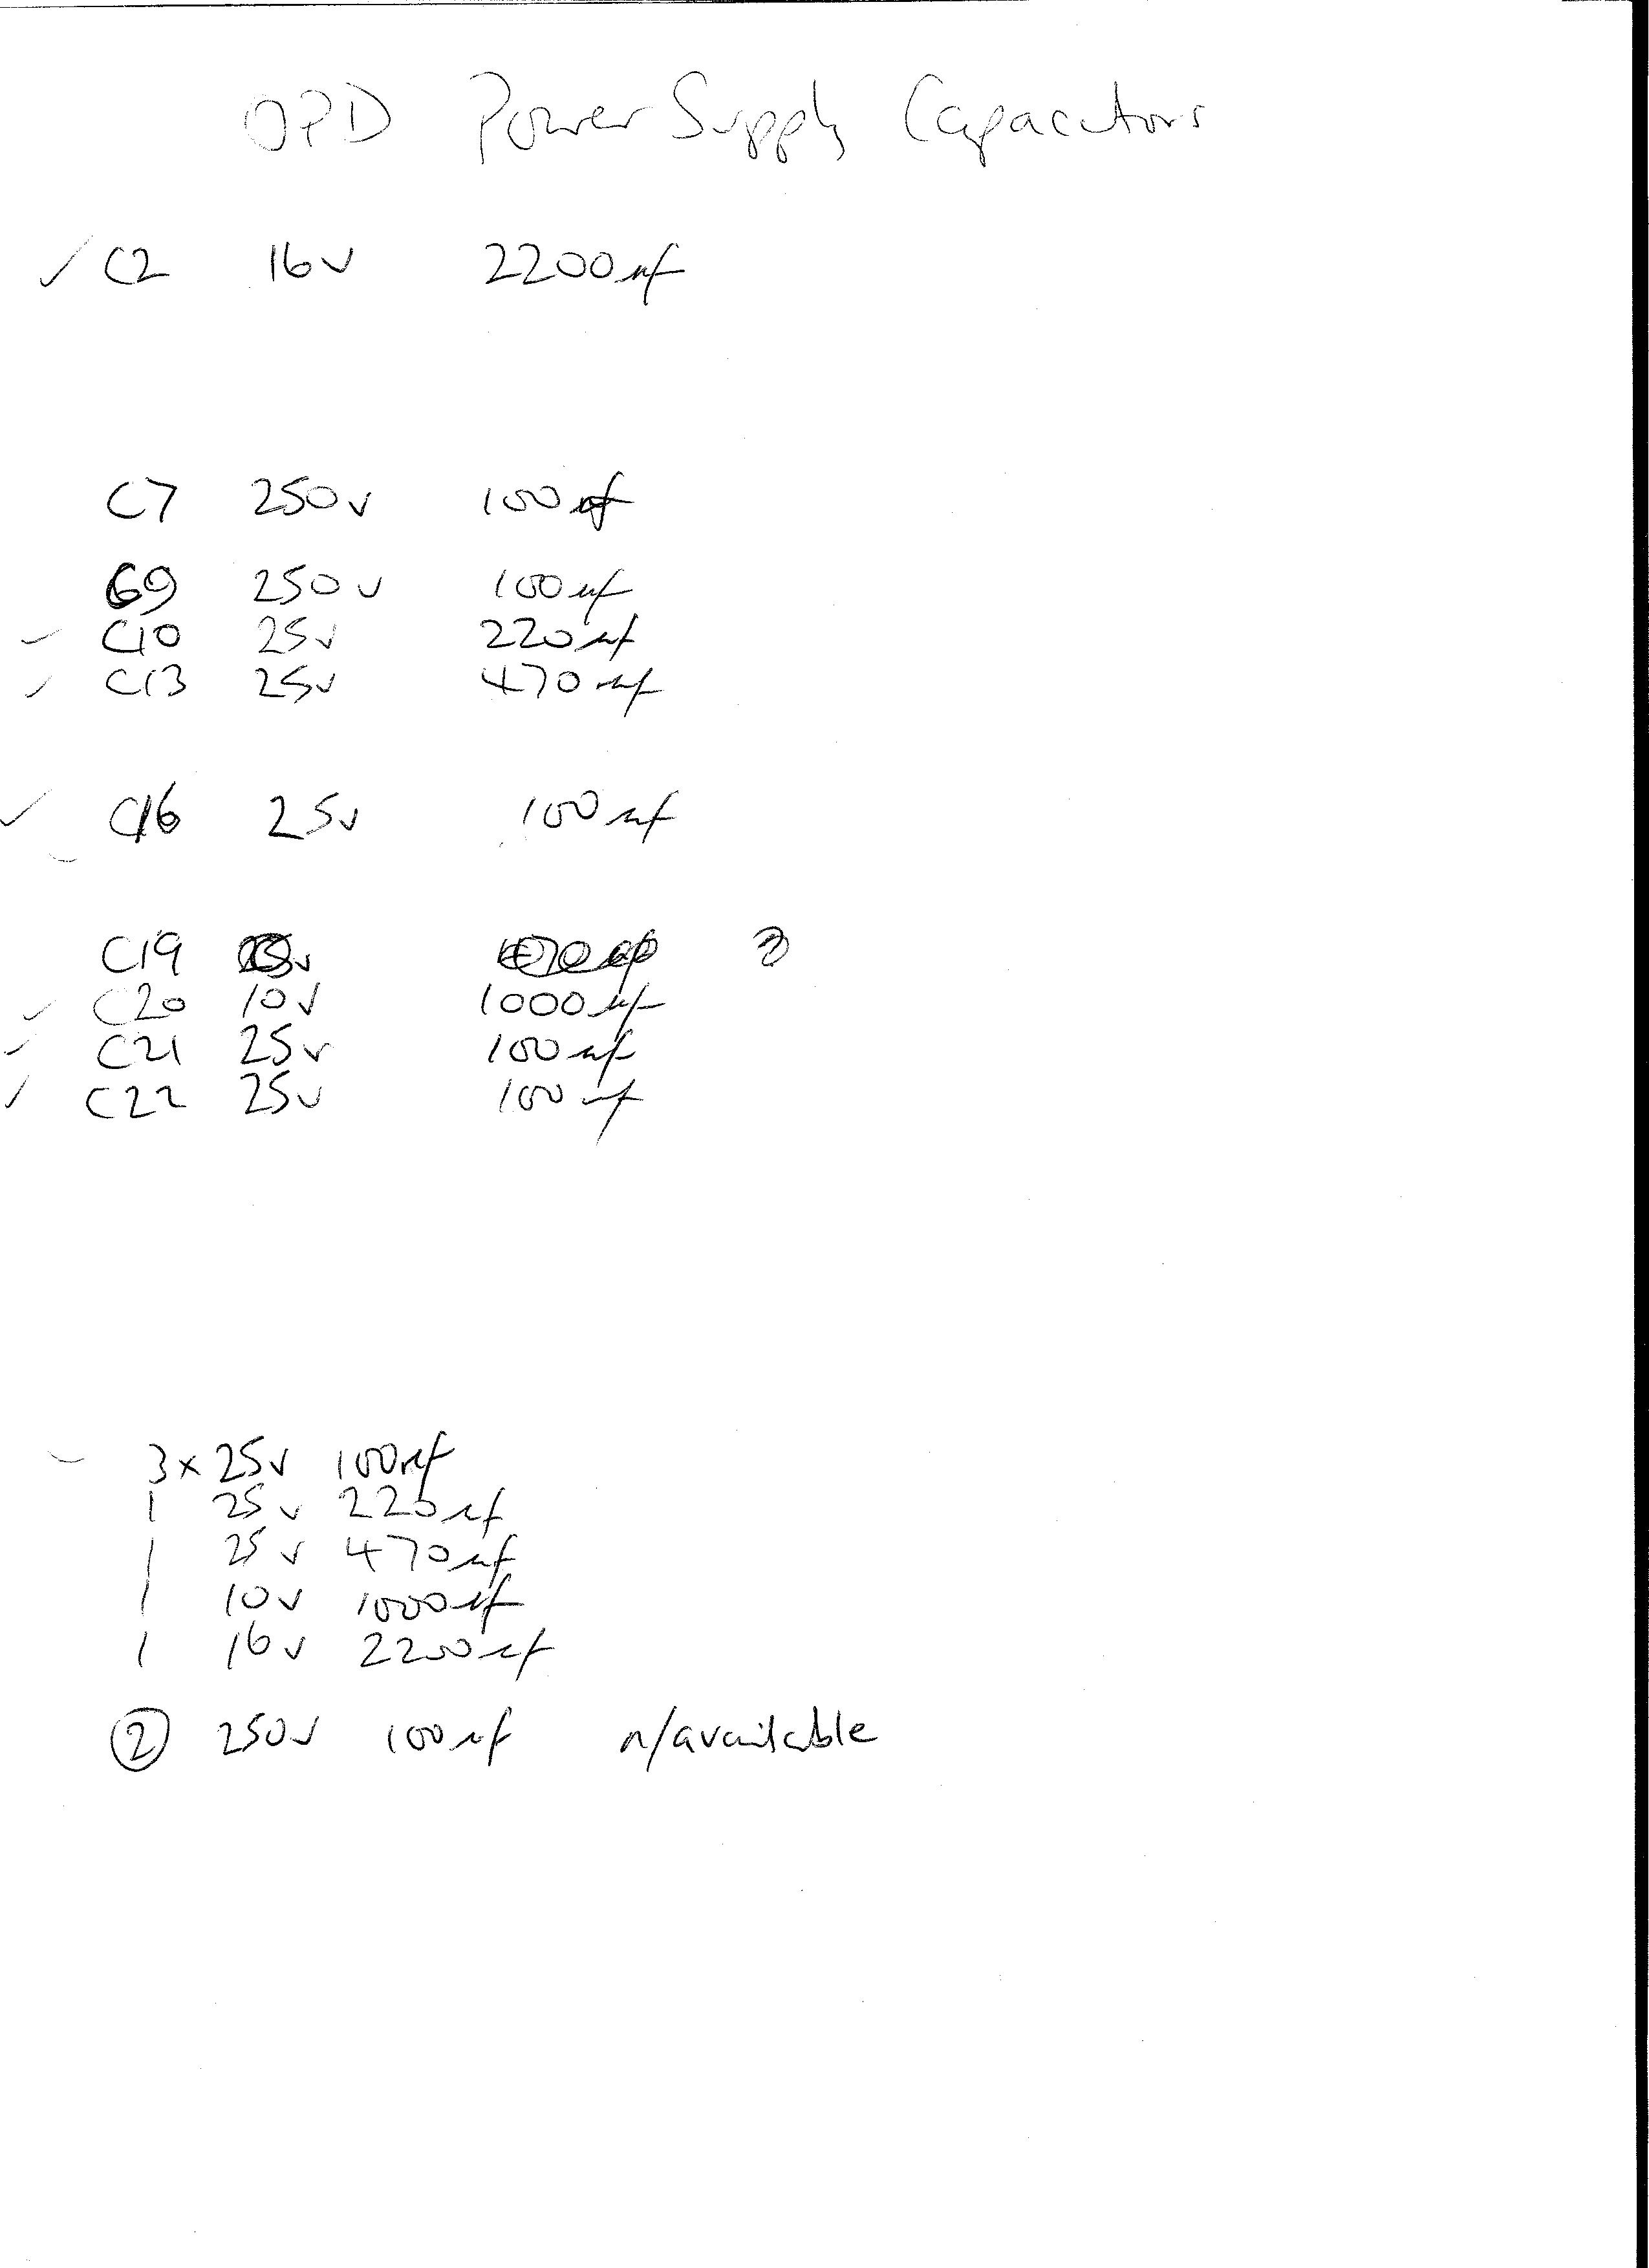 OPD Power Supply Capacitors
✓ C2 16v 2200uf
C7 250v 100uf
C9 250v 100uf
✓ C10 25v 220uf
✓ C13 25v 470uf
✓ C16 25v 100uf
C19
✓ C20 10v 1000uf
✓ C21 25v 100uf
✓ C22 25v 100uf
3 x 25v 100uf
1 25v 220uf
1 25v 470uf
1 10v 1000uf
1 16v 2200uf
2 250v 100uf n/available